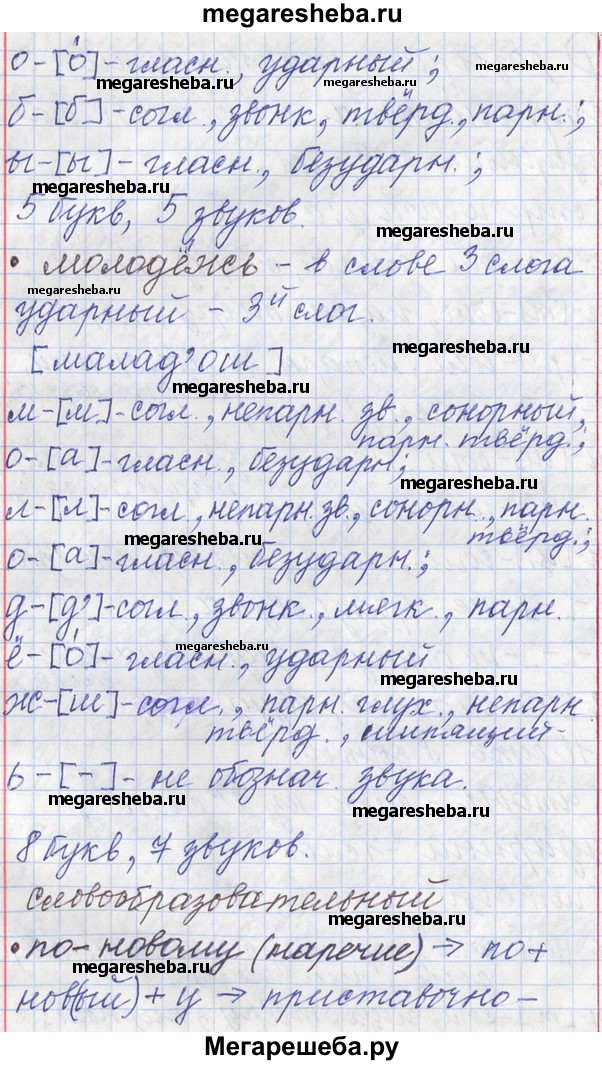 megaresheba.ru
о-[о́]-гласн., ударный;
megaresheba.ru
megaresheba.ru
б-[б]-согл., звонк., твёрд., парн.;
ы-[ы]-гласн., безударн.;
megaresheba.ru
5 букв, 5 звуков.
megaresheba.ru
• молодёжь - в слове 3 слога
ударный - 3й слог.
megaresheba.ru
[малад'ош]
megaresheba.ru
м-[м]-согл., непарн. зв., сонорный,
парн. твёрд.;
о-[а]-гласн., безударн.;
megaresheba.ru
л-[л]-согл., непарн. зв., сонорн., парн.
твёрд.;
megaresheba.ru
о-[а]-гласн., безударн.;
д-[д']-согл., звонк., мягк., парн.
megaresheba.ru
ё-[о́]-гласн., ударный
megaresheba.ru
ж-[ш]-согл., парн. глух., непарн.
твёрд., шипящий-
ь-[-]-не обознач. звука.
megaresheba.ru
megaresheba.ru
8 букв, 7 звуков.
словообразовательный
megaresheba.ru
• по-новому (наречие) → по+
megaresheba.ru
нов(ый)+у → приставочно-
Мегарешеба.ру